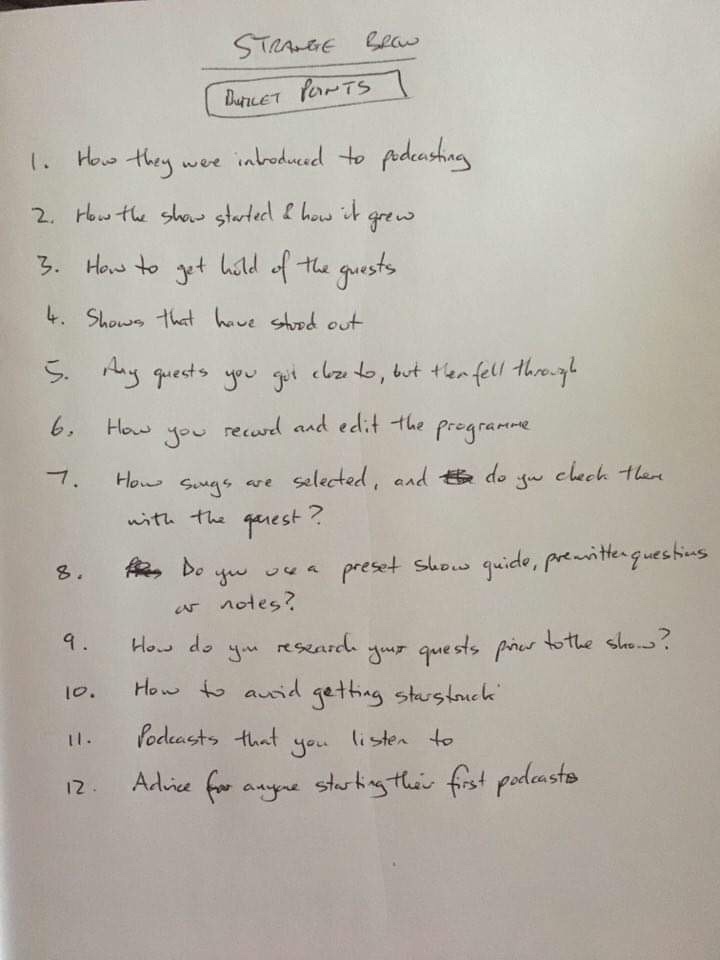 STRANGE BREW
BULLET POINTS
1. How they were introduced to podcasting
2. How the show started & how it grew
3. How to get hold of the guests
4. Shows that have stood out
5. Any guests you got close to, but then fell through
6. How you record and edit the programme
7. How songs are selected, and do you check them
with the guest?
8. Do you use a preset show guide, prewritten questions
or notes?
9. How do you research your guests prior to the show?
10. How to avoid getting starstruck
11. Podcasts that you listen to
12. Advice for anyone starting their first podcasts